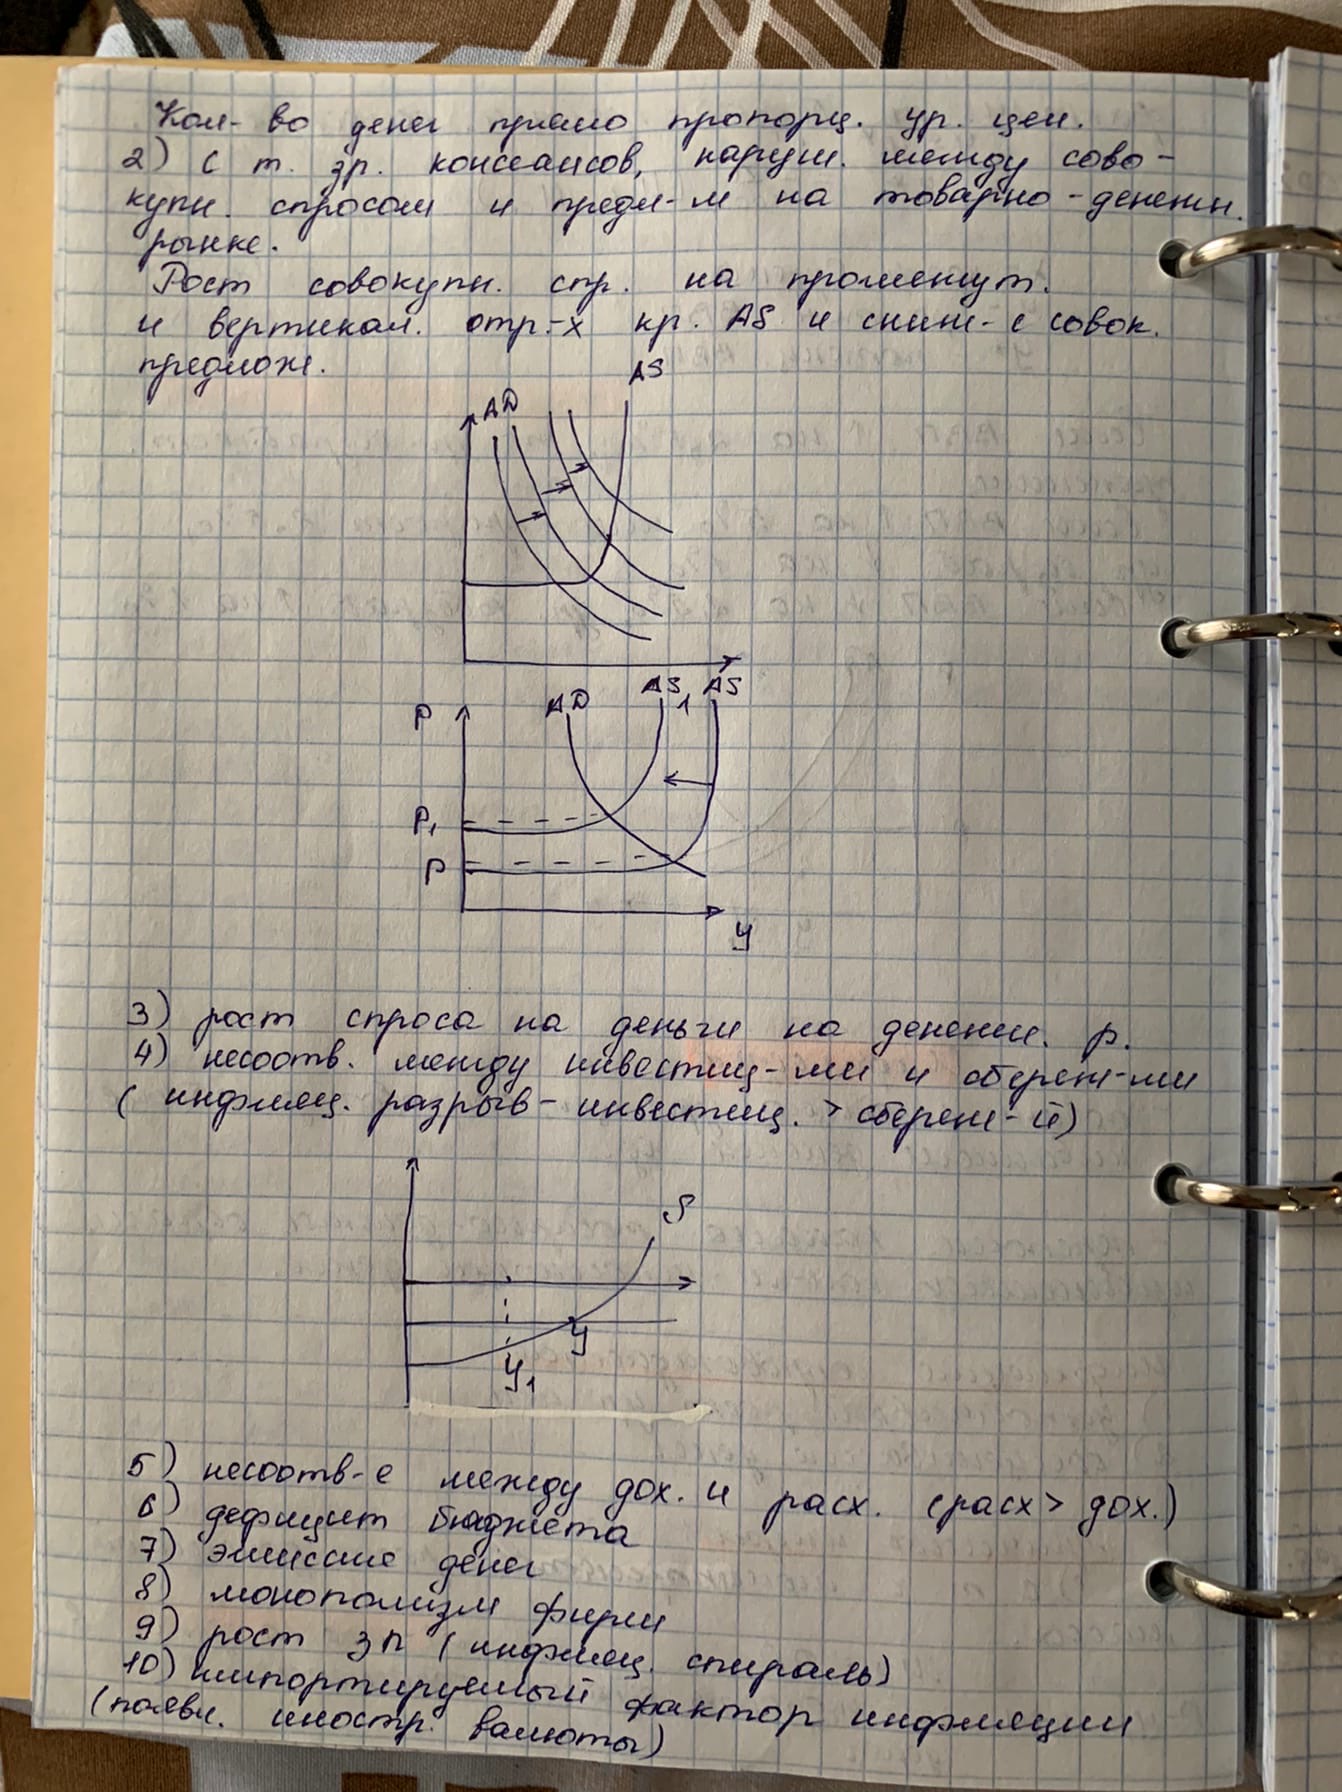 Кол-во денег прямо пропорц. ур. цен.
2) С т. зр. кейнсиансов, наруш. между сово-
купн. спросом и предл-м на товарно-денежн.
рынке.
Рост совокупн. спр. на промежут.
и вертикал. отр.-х кр. AS и сниж-е совок.
предлож.
AD AS
AD AS₁ AS
P
P₁
P
y
3) рост спроса на деньги на денежн. р.
4) несоотв. между инвестиц-ми и сбереж-ми
(инфляц. разрыв - инвестиц. > сбереж-й)
S
y
y₁
5) несоотв-е между дох. и расх. (расх > дох.)
6) дефицит бюджета
7) эмиссие денег
8) монополизм фирм
9) рост ЗП (инфляц. спираль)
10) импортируемый фактор инфляции
(появл. иностр. валюты)